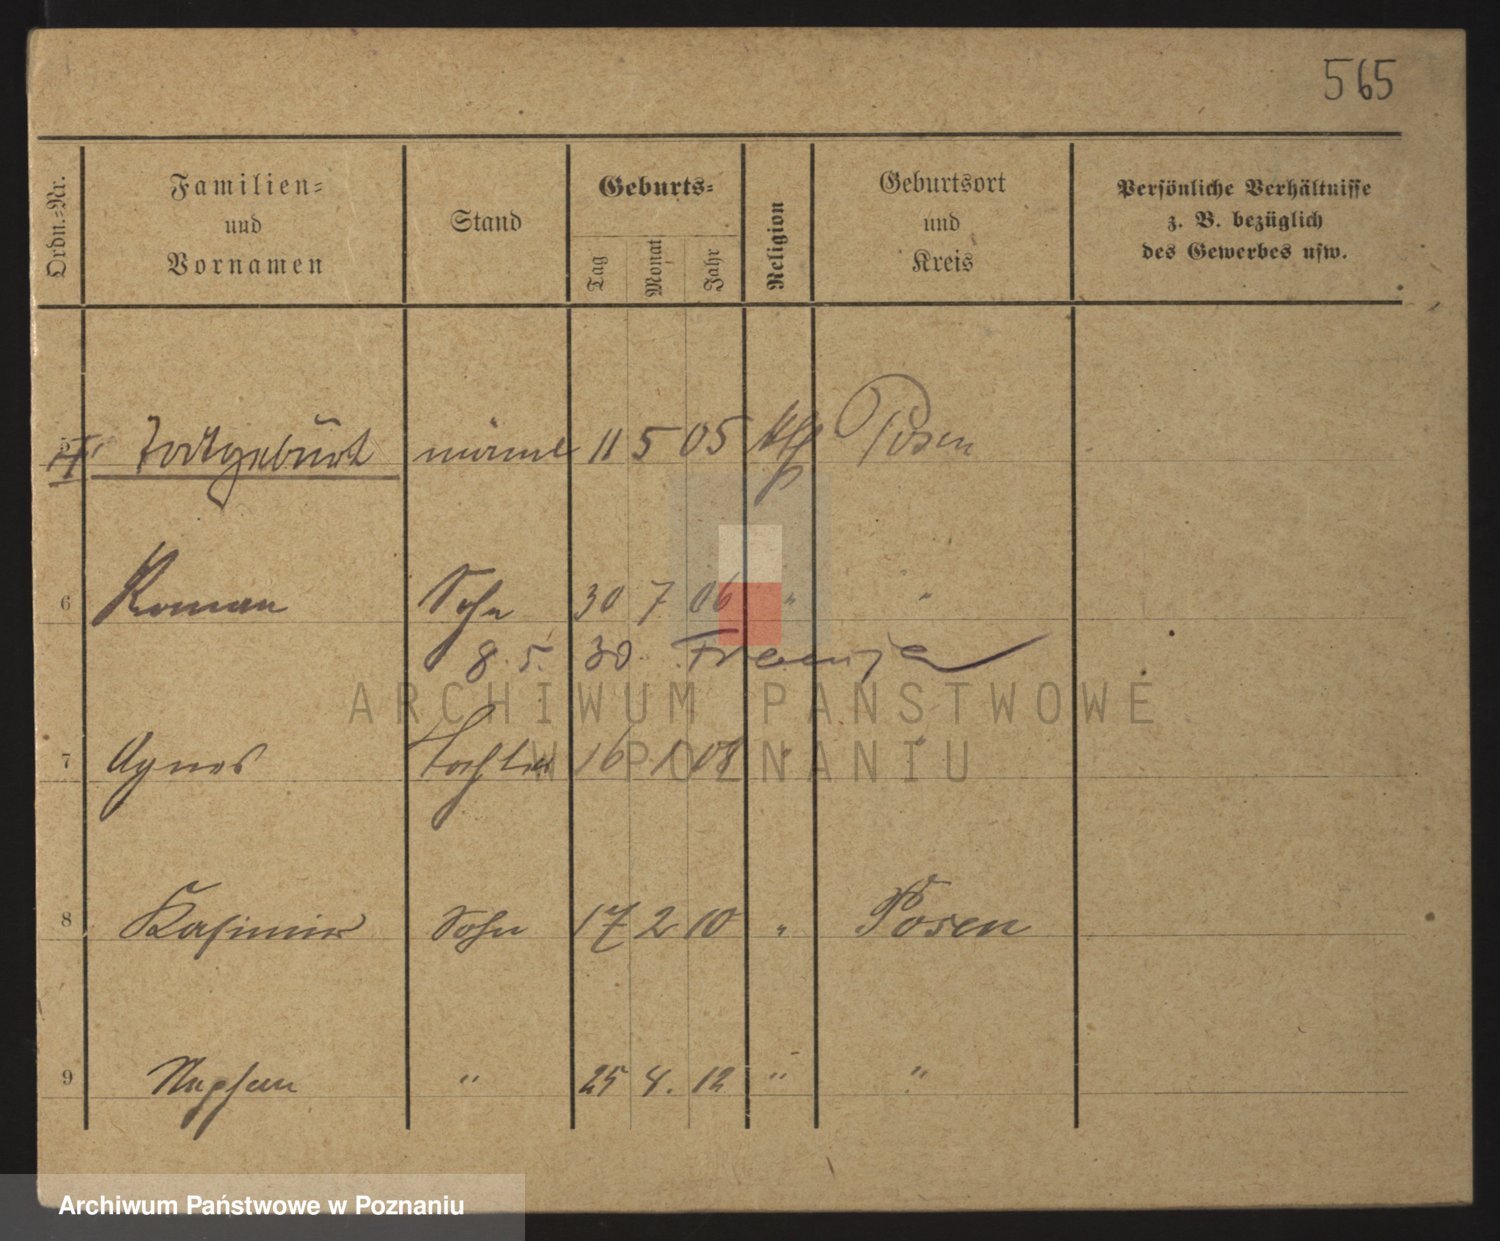 565
Ordn.-Nr.
Familien-
und
Vornamen
Stand
Geburts-
Tag
Monat
Jahr
Religion
Geburtsort
und
Kreis
Persönliche Verhältnisse
z. B. bezüglich
des Gewerbes usw.
5 Todtgeburt 11 5 05 Posen
6 Roman Sohn 30 7 06 " "
8. 5. 30.
ARCHIWUM PAŃSTWOWE
7 Agnes Tochter 16 1 08 " "
W POZNANIU
8 Kasimir Sohn 17 2 10 " Posen
9 " 25 12 " "
Archiwum Państwowe w Poznaniu